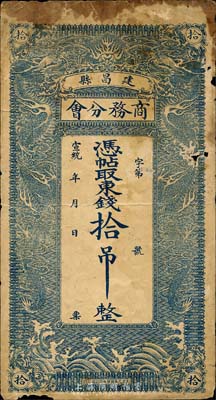 拾 拾
縣昌建
會分務商
字第 號
憑帖取東錢拾吊整
宣統 年 月 日 票
拾 拾